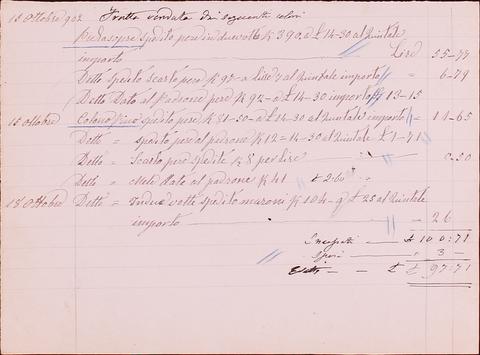 15 Ottobre 902 Frutta venduta dai seguenti coloni
spedito pere in due volte K 390 a £ 14-30 al Quintale
importo Lire 55-77
Detto spedito scarto pere K 97- a Lire 7 al Quintale importo 6-79
Detto Dato al Padrone pere K 92- a £ 14-30 importo 13-15
15 Ottobre Colono spedito pere K 81-50- a £ 14-30 al Quintale importo = 11-65
Detto = pere al padrone K 12 = 14-30 al Quintale £ 1-71
Detto = Scarto pere spedite K 8 per Lire 0-50
Detto = Mele Date al padrone K 41 £ 2-60
18 Ottobre Detto = In due volte spedito maroni K 104- a £ 25 al Quintale
importo 26
£ 100:71
Spesi 3 -
£ £ 97:71